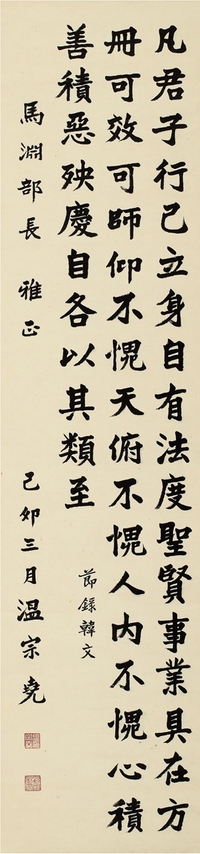 凡君子行己立身自有法度聖賢事業具在方
冊可效可師仰不愧天俯不愧人內不愧心積
善積惡殃慶自各以其類至
節錄韓文
馬淵部長 雅正
己卯三月溫宗堯